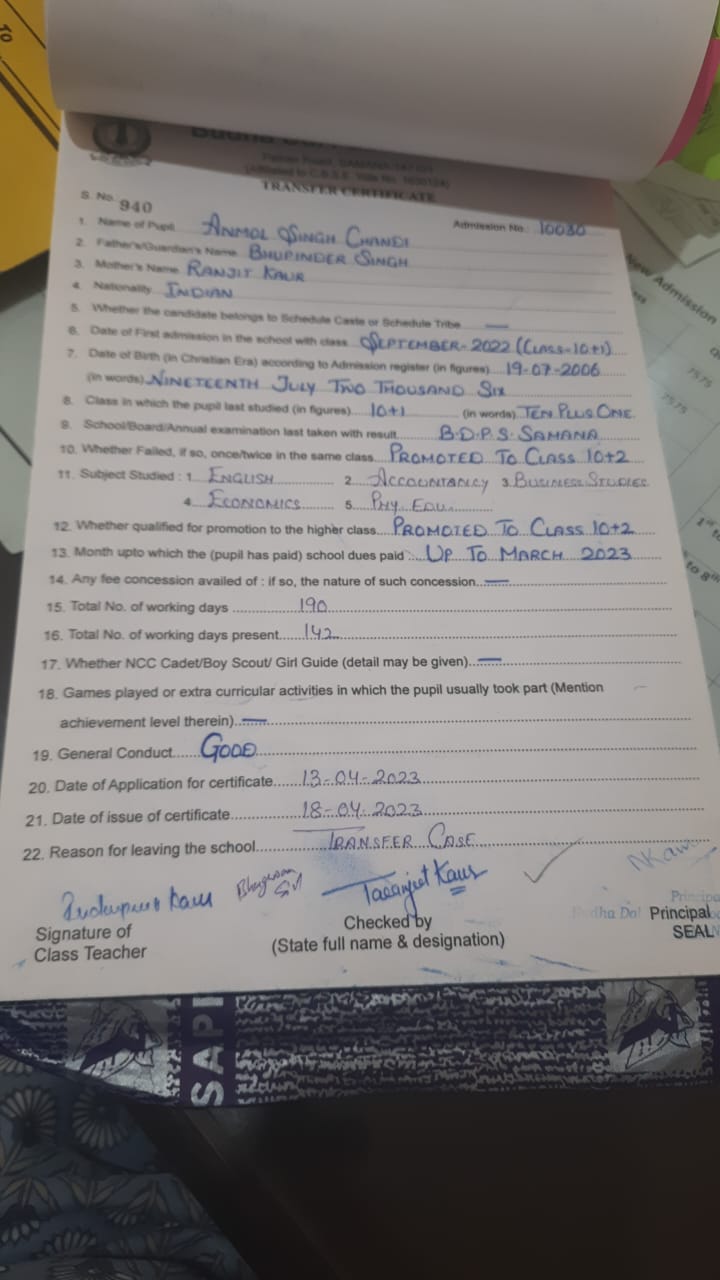 TO
TRANSFER CERTIFICATE
S. No. 940
Admission No.: 10080
1. Name of Pupil ANMOL SINGH CHANDI
2. Father's/Guardian's Name BHUPINDER SINGH
3. Mother's Name RANJIT KAUR
4. Nationality INDIAN
5. Whether the candidate belongs to Schedule Caste or Schedule Tribe —
6. Date of First admission in the school with class SEPTEMBER-2022 (CLASS-10+1)
7. Date of Birth (in Christian Era) according to Admission register (in figures) 19-07-2006
(in words) NINETEENTH JULY TWO THOUSAND SIX
8. Class in which the pupil last studied (in figures) 10+1 (in words) TEN PLUS ONE
9. School/Board/Annual examination last taken with result B.D.P.S. SAMANA
10. Whether Failed, if so, once/twice in the same class PROMOTED TO CLASS 10+2
11. Subject Studied : 1. ENGLISH 2. ACCOUNTANCY 3. BUSINESS STUDIES
4. ECONOMICS 5. PHY. EDU.
12. Whether qualified for promotion to the higher class PROMOTED TO CLASS 10+2
13. Month upto which the (pupil has paid) school dues paid UP TO MARCH 2023
14. Any fee concession availed of : if so, the nature of such concession —
15. Total No. of working days 190
16. Total No. of working days present 142
17. Whether NCC Cadet/Boy Scout/ Girl Guide (detail may be given) —
18. Games played or extra curricular activities in which the pupil usually took part (Mention
achievement level therein) —
19. General Conduct GOOD
20. Date of Application for certificate 13-04-2023
21. Date of issue of certificate 18-04-2023
22. Reason for leaving the school TRANSFER CASE
Signature of
Class Teacher
Checked by
(State full name & designation)
Principal
SEAL
New Admission
7575
7575
SAPI